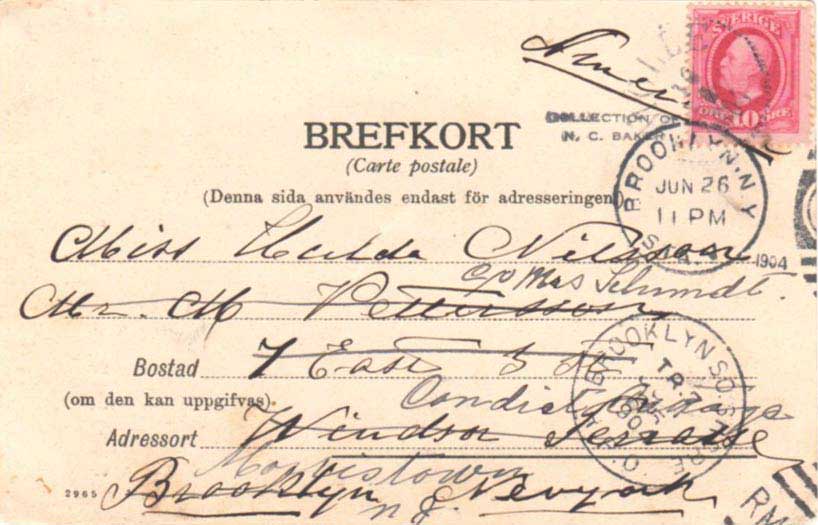 SVERIGE
10 ÖRE
COLLECTION OF
N. C. BAKER
BREFKORT
(Carte postale)
(Denna sida användes endast för adresseringen)
BROOKLYN. N.Y
JUN 26
11 PM
1904
Miss Hulda Nilsson
c/o Mrs Schmidt.
Mr. M Pettersson
Bostad 7 East 5 St
(om den kan uppgifvas).
Adressort Windsor Terrasse
Morristown
n J.
Brooklyn Nevyork
2965
BROOKLYN SO. SHORE
TR. 7
RM